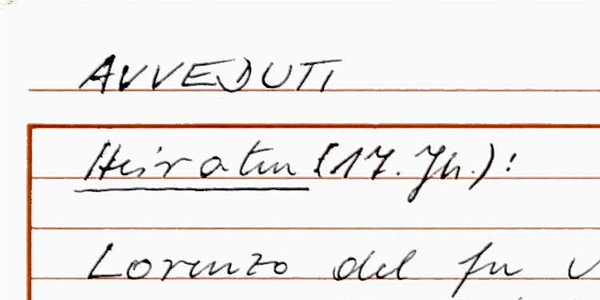 AVVEDUTI
Heiraten (17. Jh.):
Lorenzo del fu